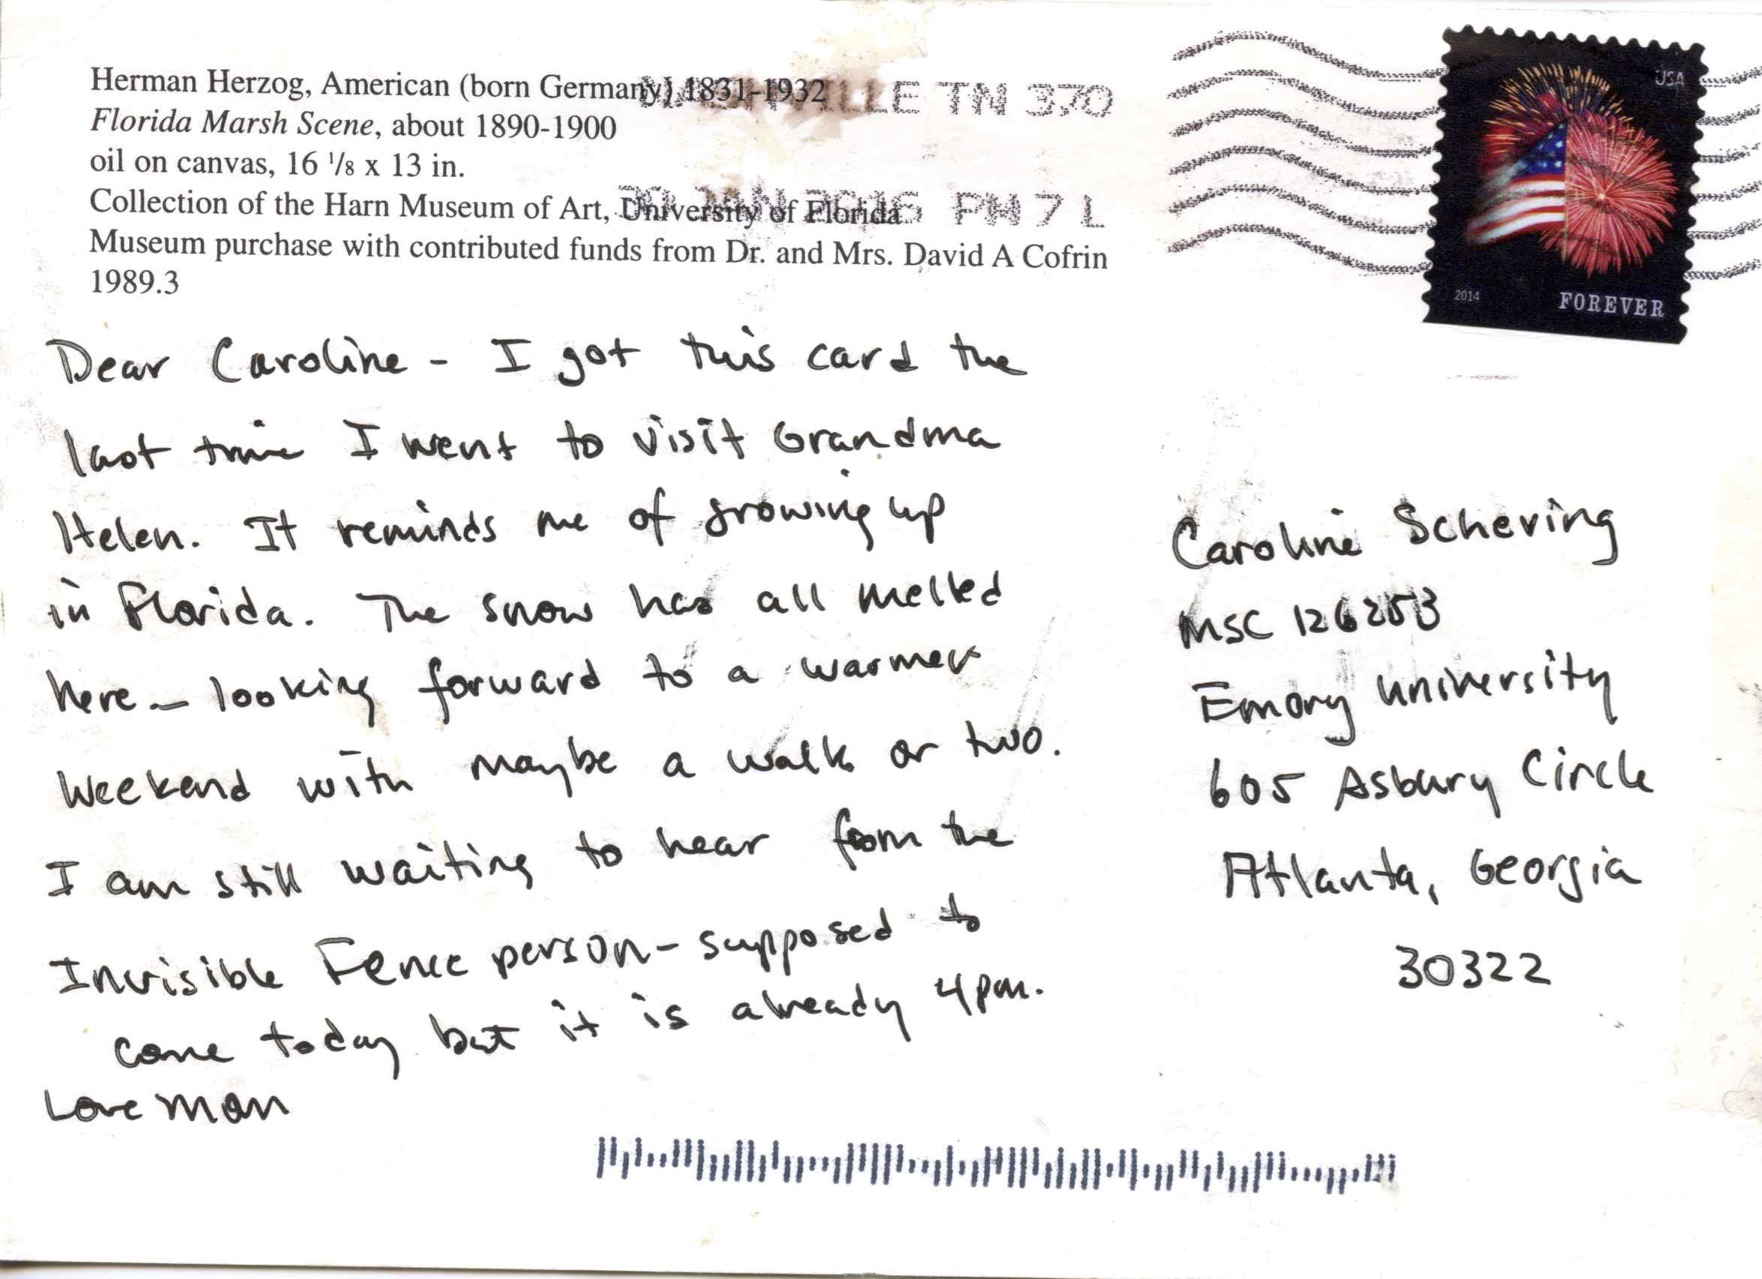 Herman Herzog, American (born Germany) 1831-1932
Florida Marsh Scene, about 1890-1900
oil on canvas, 16 1/8 x 13 in.
Collection of the Harn Museum of Art, University of Florida
Museum purchase with contributed funds from Dr. and Mrs. David A Cofrin
1989.3
TN 370
PM 7 L
USA
2014
FOREVER
Dear Caroline - I got this card the
last time I went to visit Grandma
Helen. It reminds me of growing up
in Florida. The snow has all melted
here - looking forward to a warmer
weekend with maybe a walk or two.
I am still waiting to hear from the
Invisible Fence person - supposed to
come today but it is already 4pm.
Love Mom
Caroline Schering
MSC 126253
Emory University
605 Asbury Circle
Atlanta, Georgia
30322